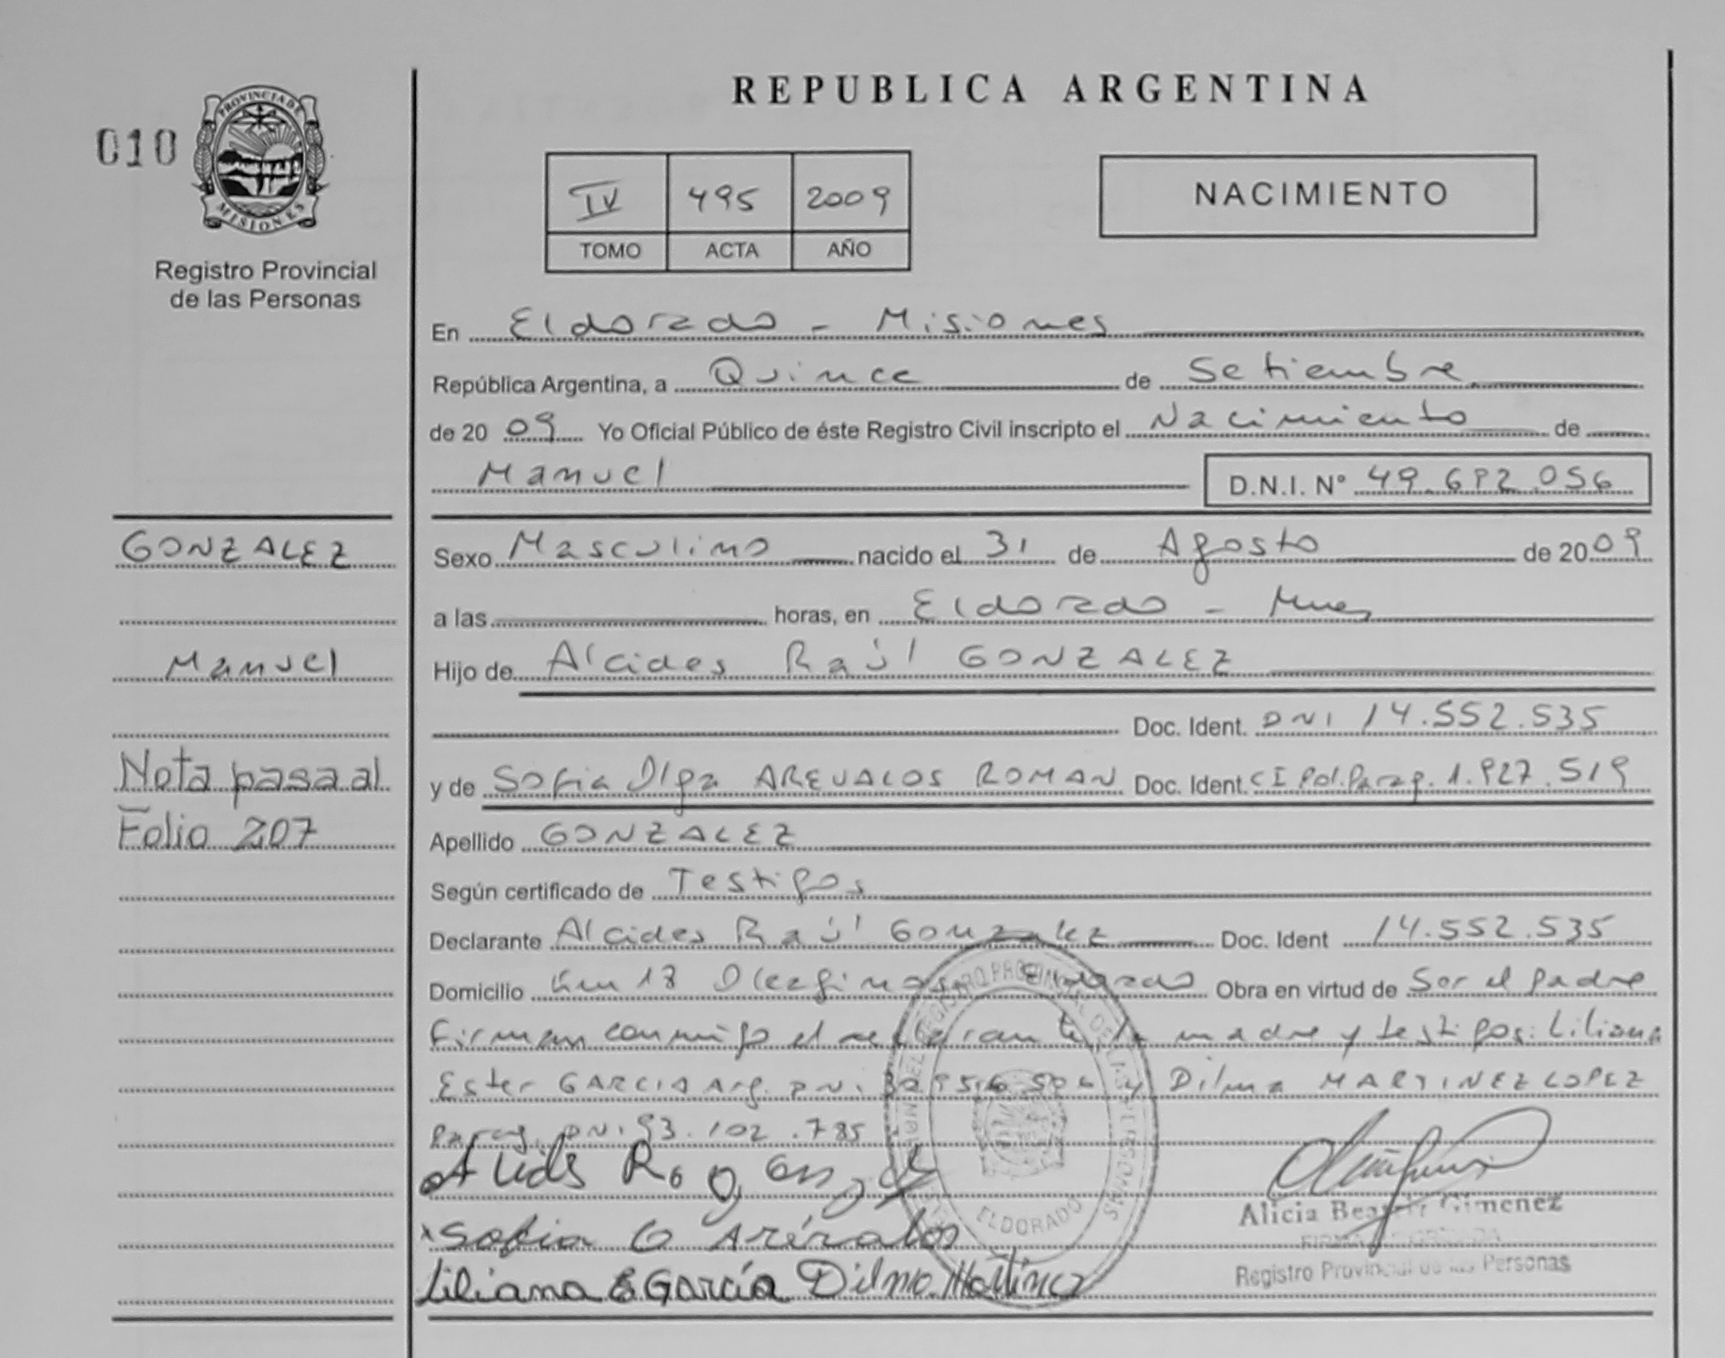 REPUBLICA ARGENTINA
010
PROVINCIA DE
MISIONES
Registro Provincial
de las Personas
IV 495 2009
TOMO ACTA AÑO
NACIMIENTO
En Eldorado - Misiones
República Argentina, a Quince de Setiembre
de 2009 Yo Oficial Público de éste Registro Civil inscripto el Nacimiento de
Manuel D.N.I. N° 49.682.056
GONZALEZ
Sexo Masculino nacido el 31 de Agosto de 2009
a las horas, en Eldorado - Mnes
Manuel
Hijo de Alcides Raúl GONZALEZ
Doc. Ident. DNI 14.552.535
Nota pasa al
Folio 207
y de Sofia Olga AREVALOS ROMAN Doc. Ident CI Pol. Parag. 1.927.519
Apellido GONZALEZ
Según certificado de Testigos
Declarante Alcides Raúl Gonzalez Doc. Ident 14.552.535
Domicilio Km 18 Eldorado Obra en virtud de Ser el padre
Firman conmigo el declarante, la madre y testigos: Liliana
Ester GARCIA Arg. DNI y Dilma MARTINEZ LOPEZ
Parag. DNI 93.102.785
Alcides R. Gonzalez
Sofia O Arévalos
Liliana E García Dilma Martinez
ELDORADO
Alicia Beatriz Gimenez
Registro Provincial de las Personas